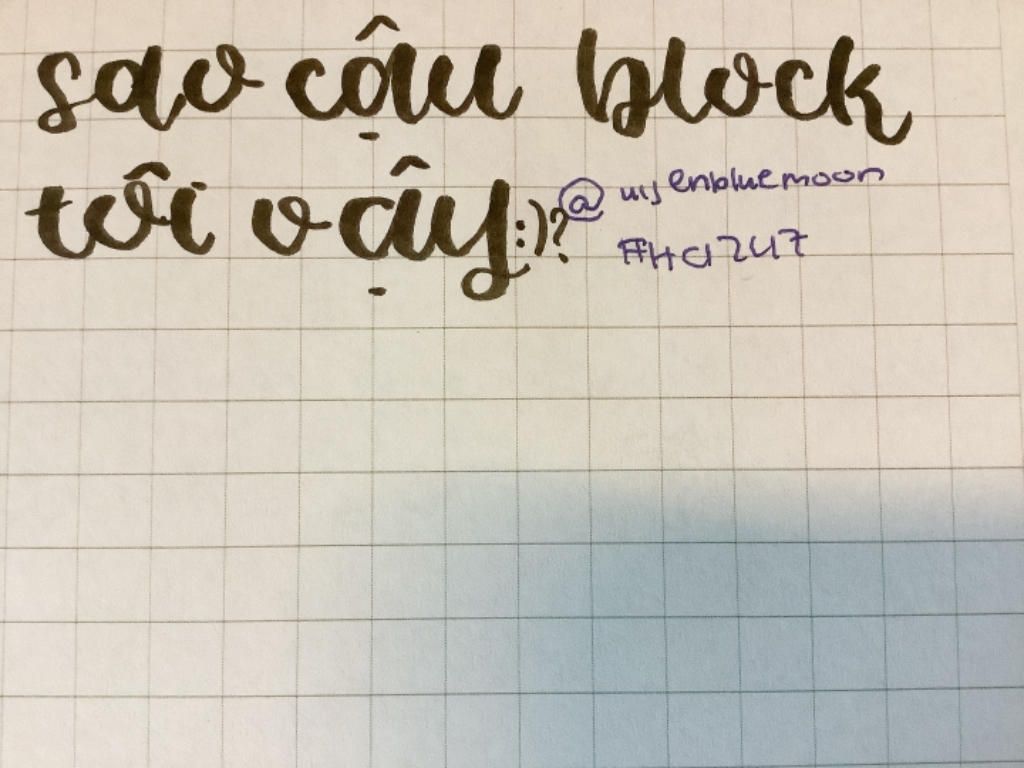 sao cậu block
tôi vậy :)?
@uyenbluemoon
#HCl247